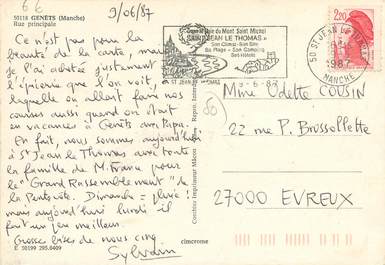 66
50118 GENÊTS (Manche)
Rue principale
9/06/87
Ce n'est pas pour la
beauté de la carte, mais
je l'ai achetée justement
l'épicerie que l'on voit,
laquelle on allait faire nos
courses aussi quand on était
en vacances à Genêts avec Papa.
En fait, nous sommes aujourd'hui
à St Jean le Thomas avec toute
la famille de M. France pour
le "Grand Rassemblement" de
la Pentecôte. Dimanche = pluie ;
mais aujourd'hui lundi il
fait un peu meilleur.
Grosses bises de nous cinq
Sylvain
E 50199 295.0409
cimcrome
Mont Saint Michel
SAINT JEAN LE THOMAS
Son Climat - Son Site
Sa Plage - Son Camping
Ses Hôtels
50 ST JEAN LE THOMAS
1987
MANCHE
2,20
50
Mme Odette COUSIN
22 rue P. Brossolette
27000 EVREUX